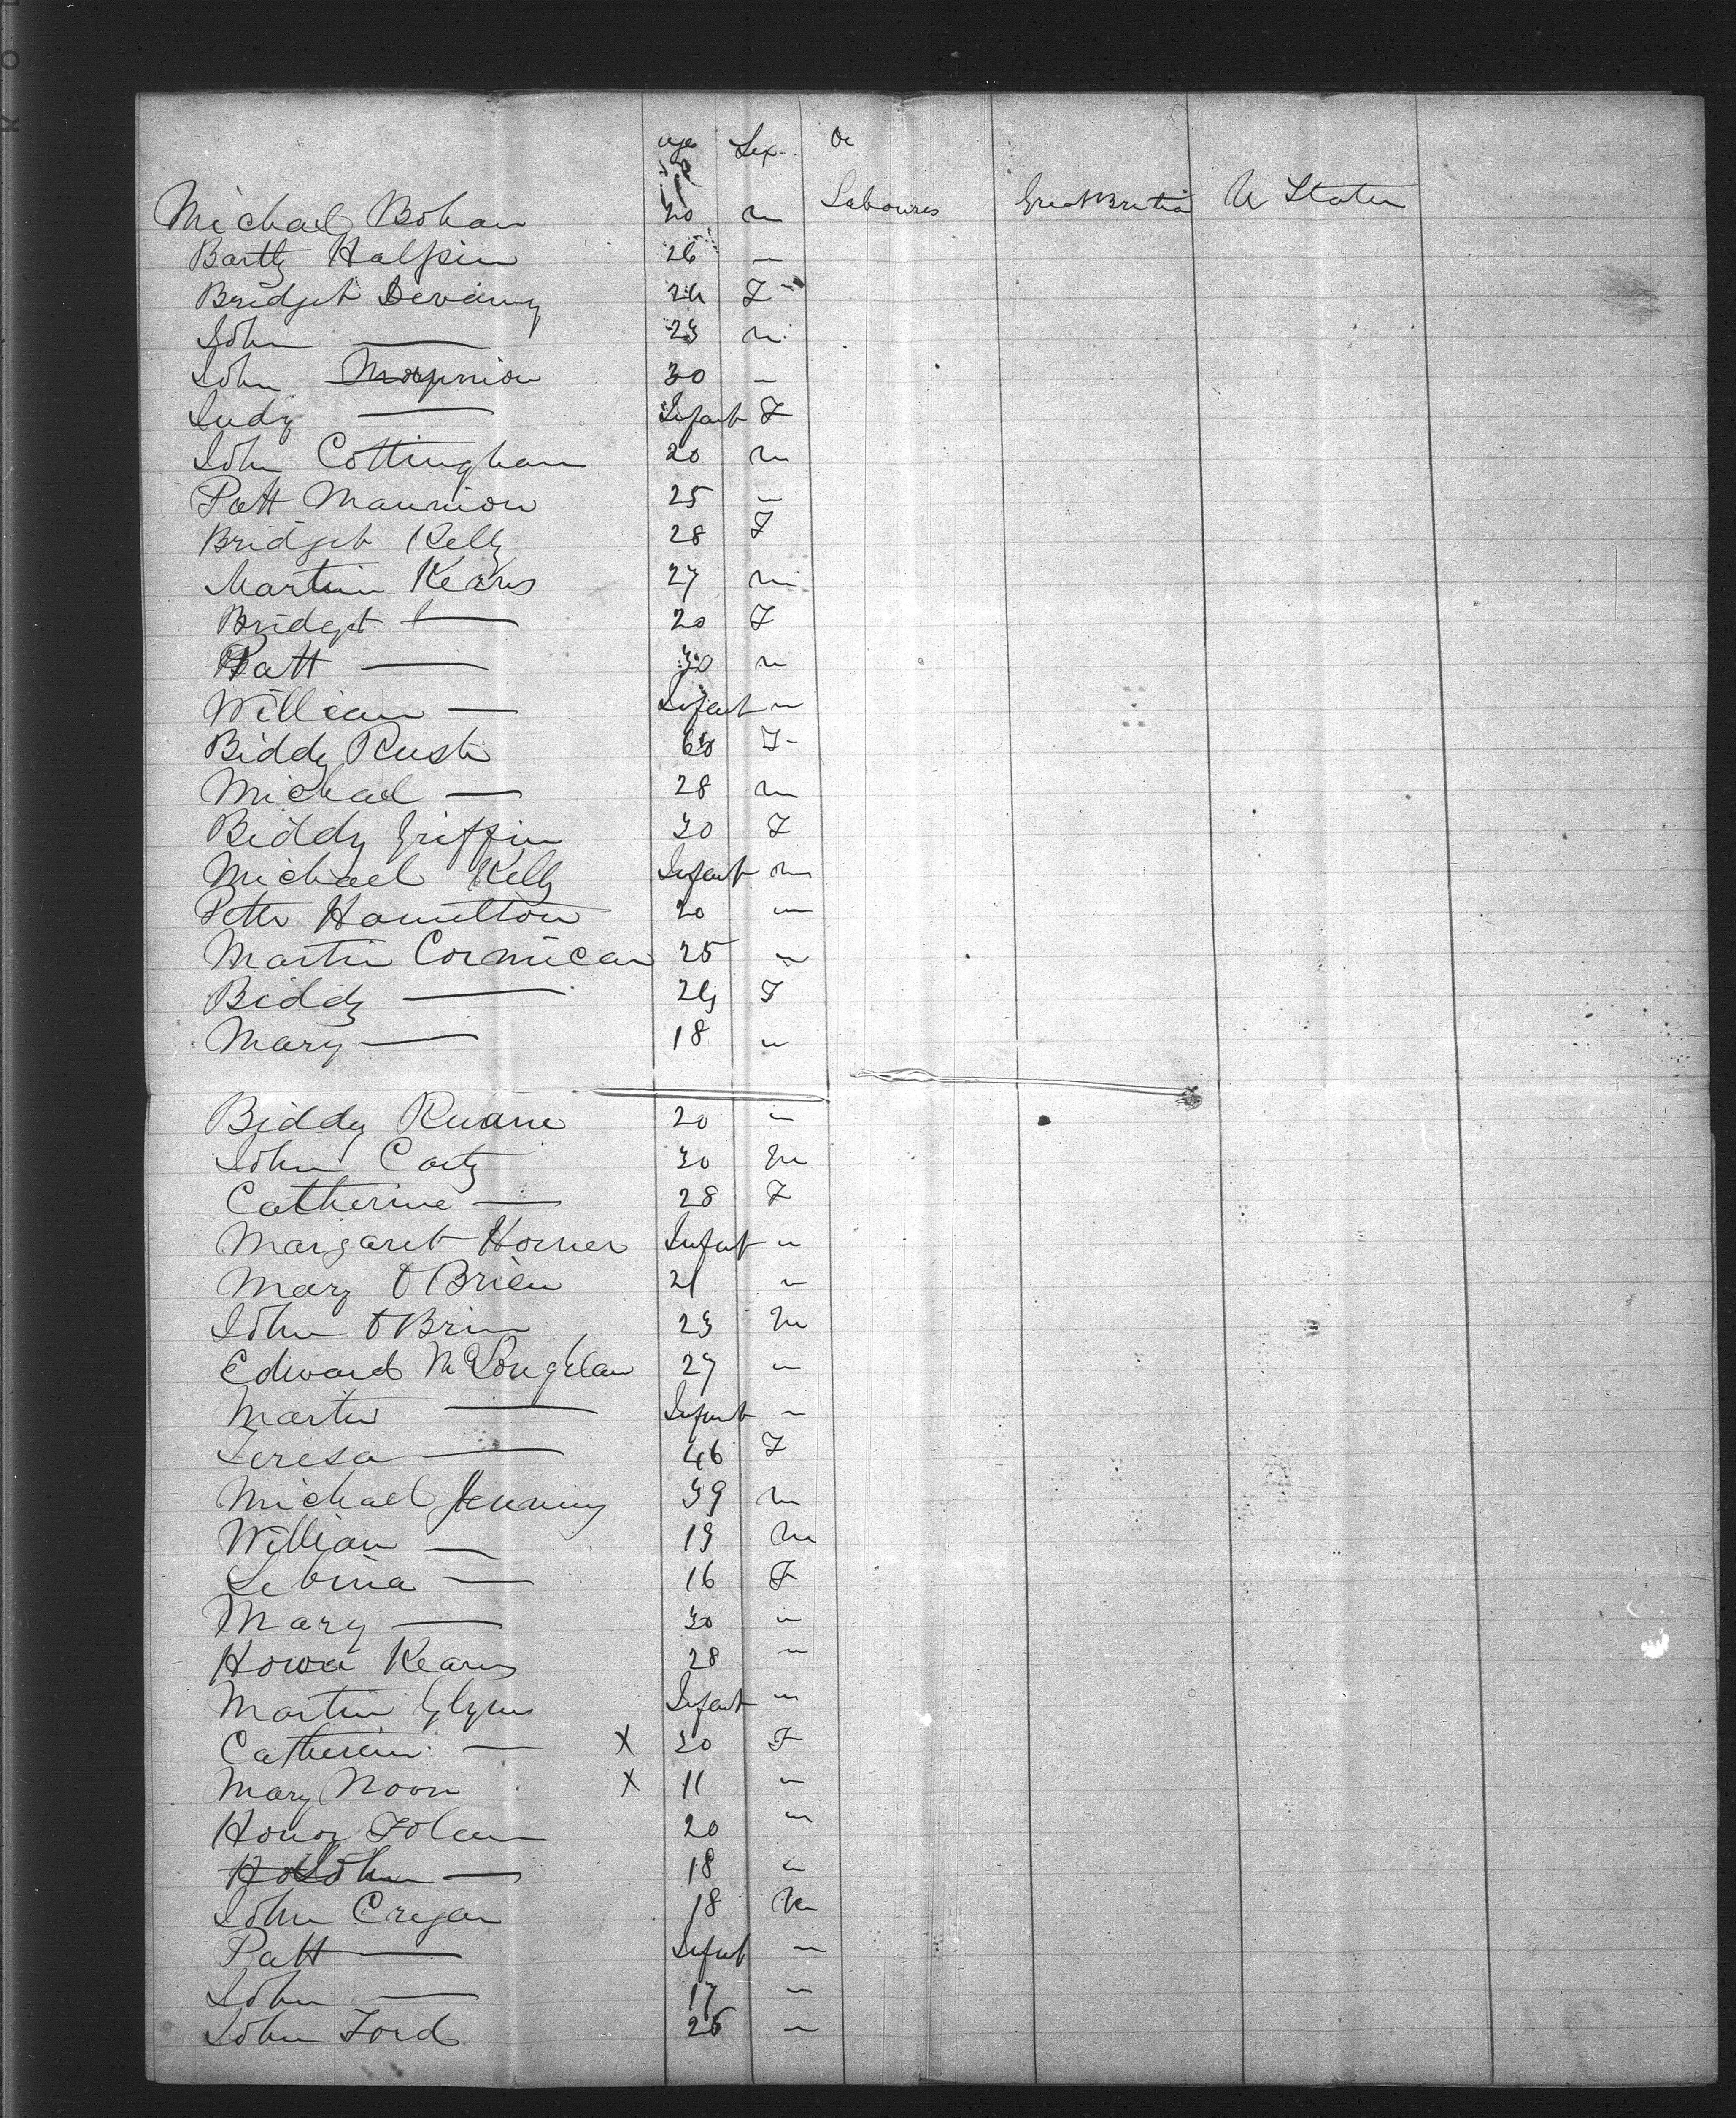 age Sex Oc
Michael Bohan 20 m Laboures Great Britia U States
Bartly Halpin 26 "
Bridget Devanny 24 F
John — 23 m
John Mannion 30 "
Judy — Infant F
John Cottingham 20 m
Patt Mannion 25 "
Bridget Kelly 28 F
Martin Kearns 27 m
Bridget — 20 F
Patt — 30 m
William — Infant "
Biddy Rush 60 F
Michael — 28 m
Biddy Griffin 30 F
Michael Kelly Infant m
Peter Hamilton 20 "
Martin Cormican 25 "
Biddy — 24 F
Mary — 18 "
Biddy Ruane 20 "
John Carty 30 m
Catherine — 28 F
Margaret Horner Infant "
Mary O Brien 21 "
John O Brien 23 m
Edward McLoughlan 27 "
Martin — Infant "
Teresa — 46 F
Michael Jennings 39 m
William — 19 m
Sebina — 16 F
Mary — 30 "
Kearns 28 "
Martin Glynn Infant "
Catherin — X 30 F
Mary Noon X 11 "
Honor Folan 20 "
John — 18 "
John Cregan 18 m
Patt — Infant "
John — 17 "
John Ford 25 "